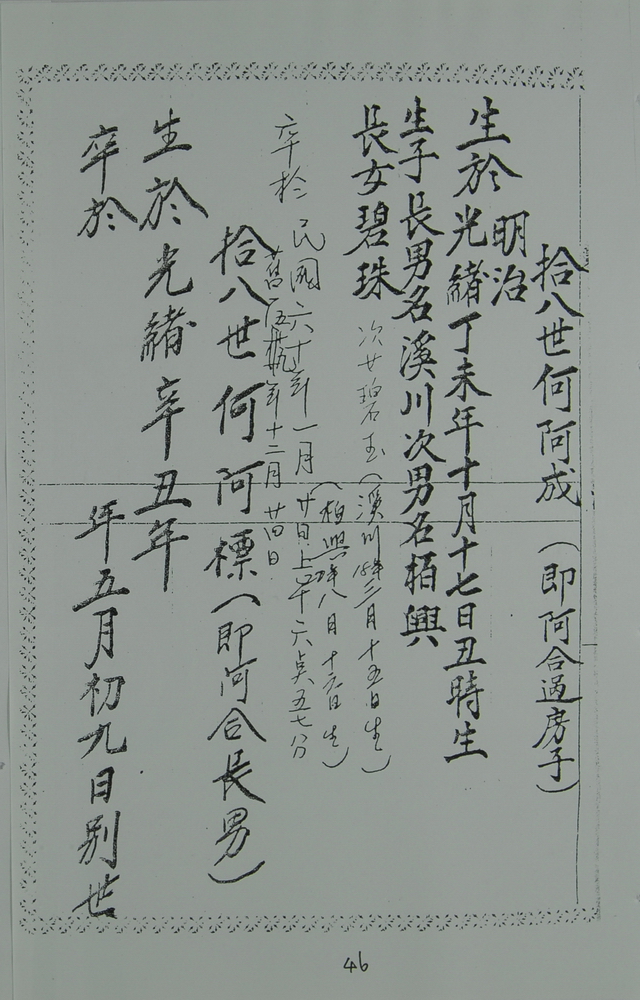 拾八世何阿成（即阿合過房子）
明治
生於光緒丁未年十月十七日丑時生
生子長男名溪川次男名栢興
長女碧珠 次女碧玉（溪川 年三月十五日生）
（栢興 年八月十六日生）
卒於民國六十年一月廿日上午六点五七分
舊 年十二月廿四日
拾八世何阿標（即阿合長男）
生於光緒辛丑年
卒於 年五月初九日別世
46